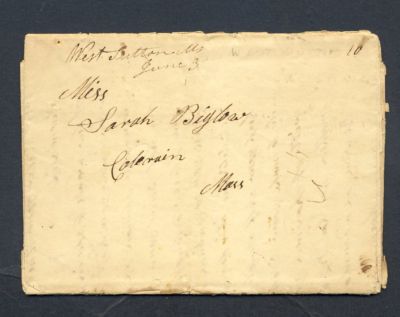 West Sutton Ms 10
June 3
Miss
Sarah Biglow
Colerain
Mass